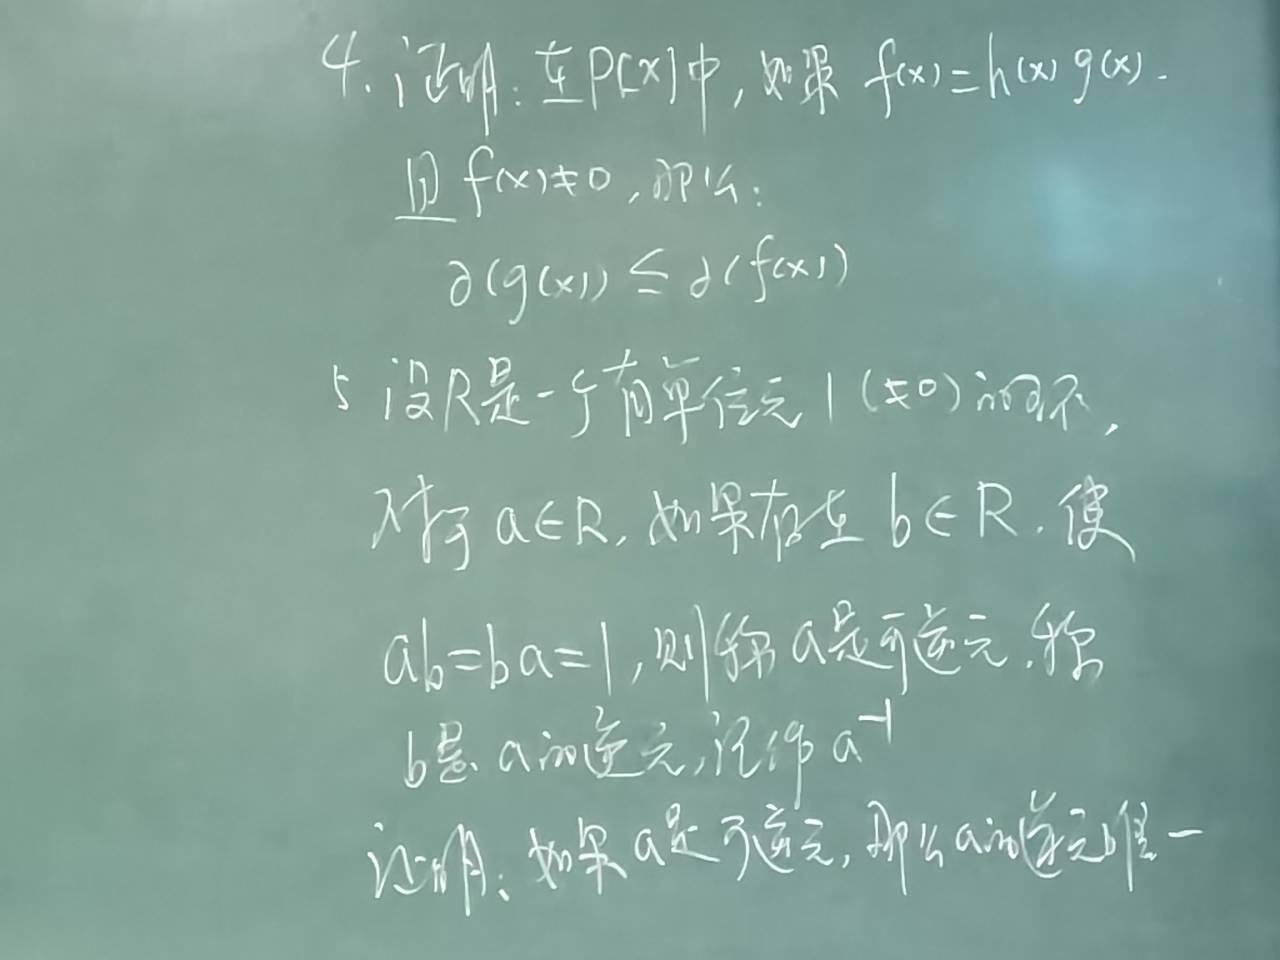 4.证明:在P[x]中,如果 f(x)=h(x)g(x).
且 f(x)≠0,那么:
∂(g(x))≤∂(f(x))
5 设R是一个有单位元1(≠0)的环,
对于 a∈R,如果存在 b∈R.使
ab=ba=1,则称a是可逆元.称
b是a的逆元,记作a⁻¹
证明:如果a是可逆元,那么a的逆元唯一